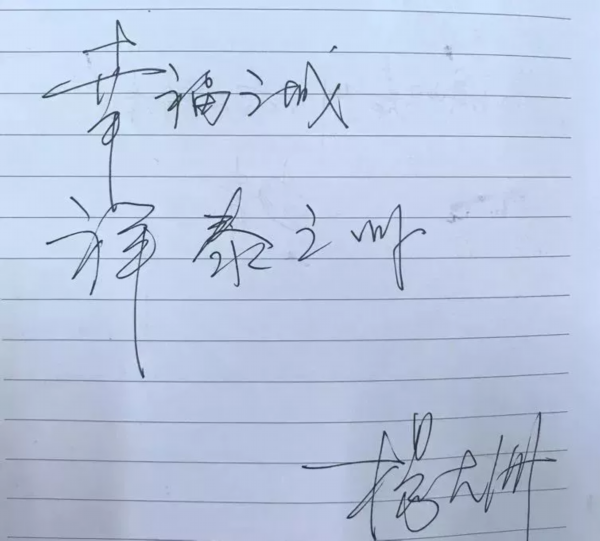 幸福之城
祥泰之州
杨大州